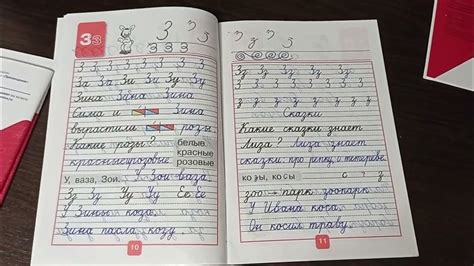 Зз
З З з
З З З
З З З З З З З З З З З
За За Зи Зи Зу Зу
Зина Зина Зина
Сима и Зина
вырастили розы.
Какие розы? белые.
красные
красныерозовые розовые
У, ваза, Зои. У Зои ваза.
Зз Зз Уу Уу Ее Ее
У Зины коза.
Зина пасла козу.
10
З з З з
Зз Зз Зз Зз Зз
Сказки
Какие сказки знает
Лиза? Лиза знает
сказки про репку и тетерева.
козы, косы с ? з
зоо → парк зоопарк
У Ивана коса.
Он косил траву.
11